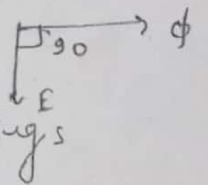 90 ϕ
E
g s